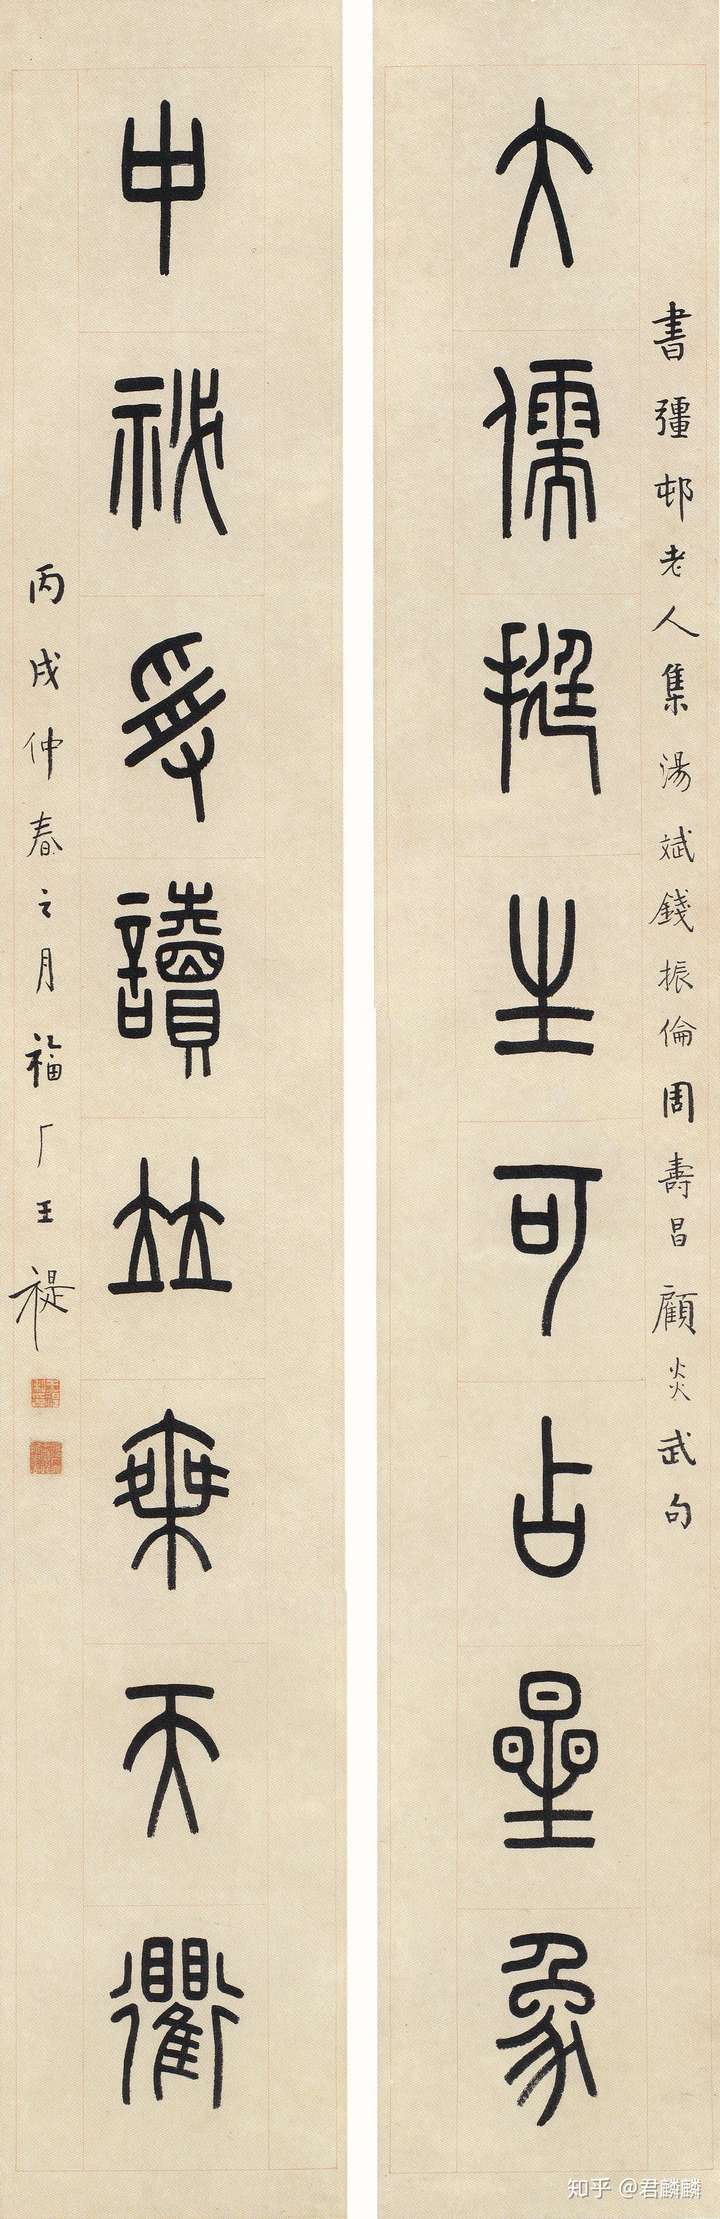 書彊邨老人集湯斌錢振倫周壽昌顧炎武句
大儒挺生可占星象
中祕受讀並乘天衢
丙戌仲春之月福厂王禔
知乎 @君麟麟